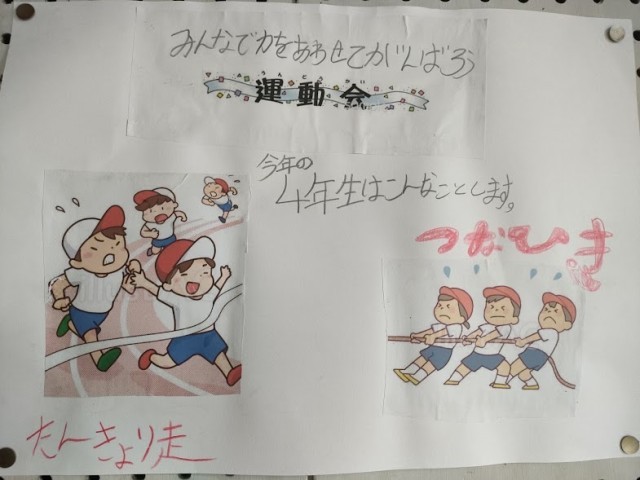 みんなで力をあわせてがんばろう
運動会
今年の
4年生はこんなことします。
つなひき
たんきょり走